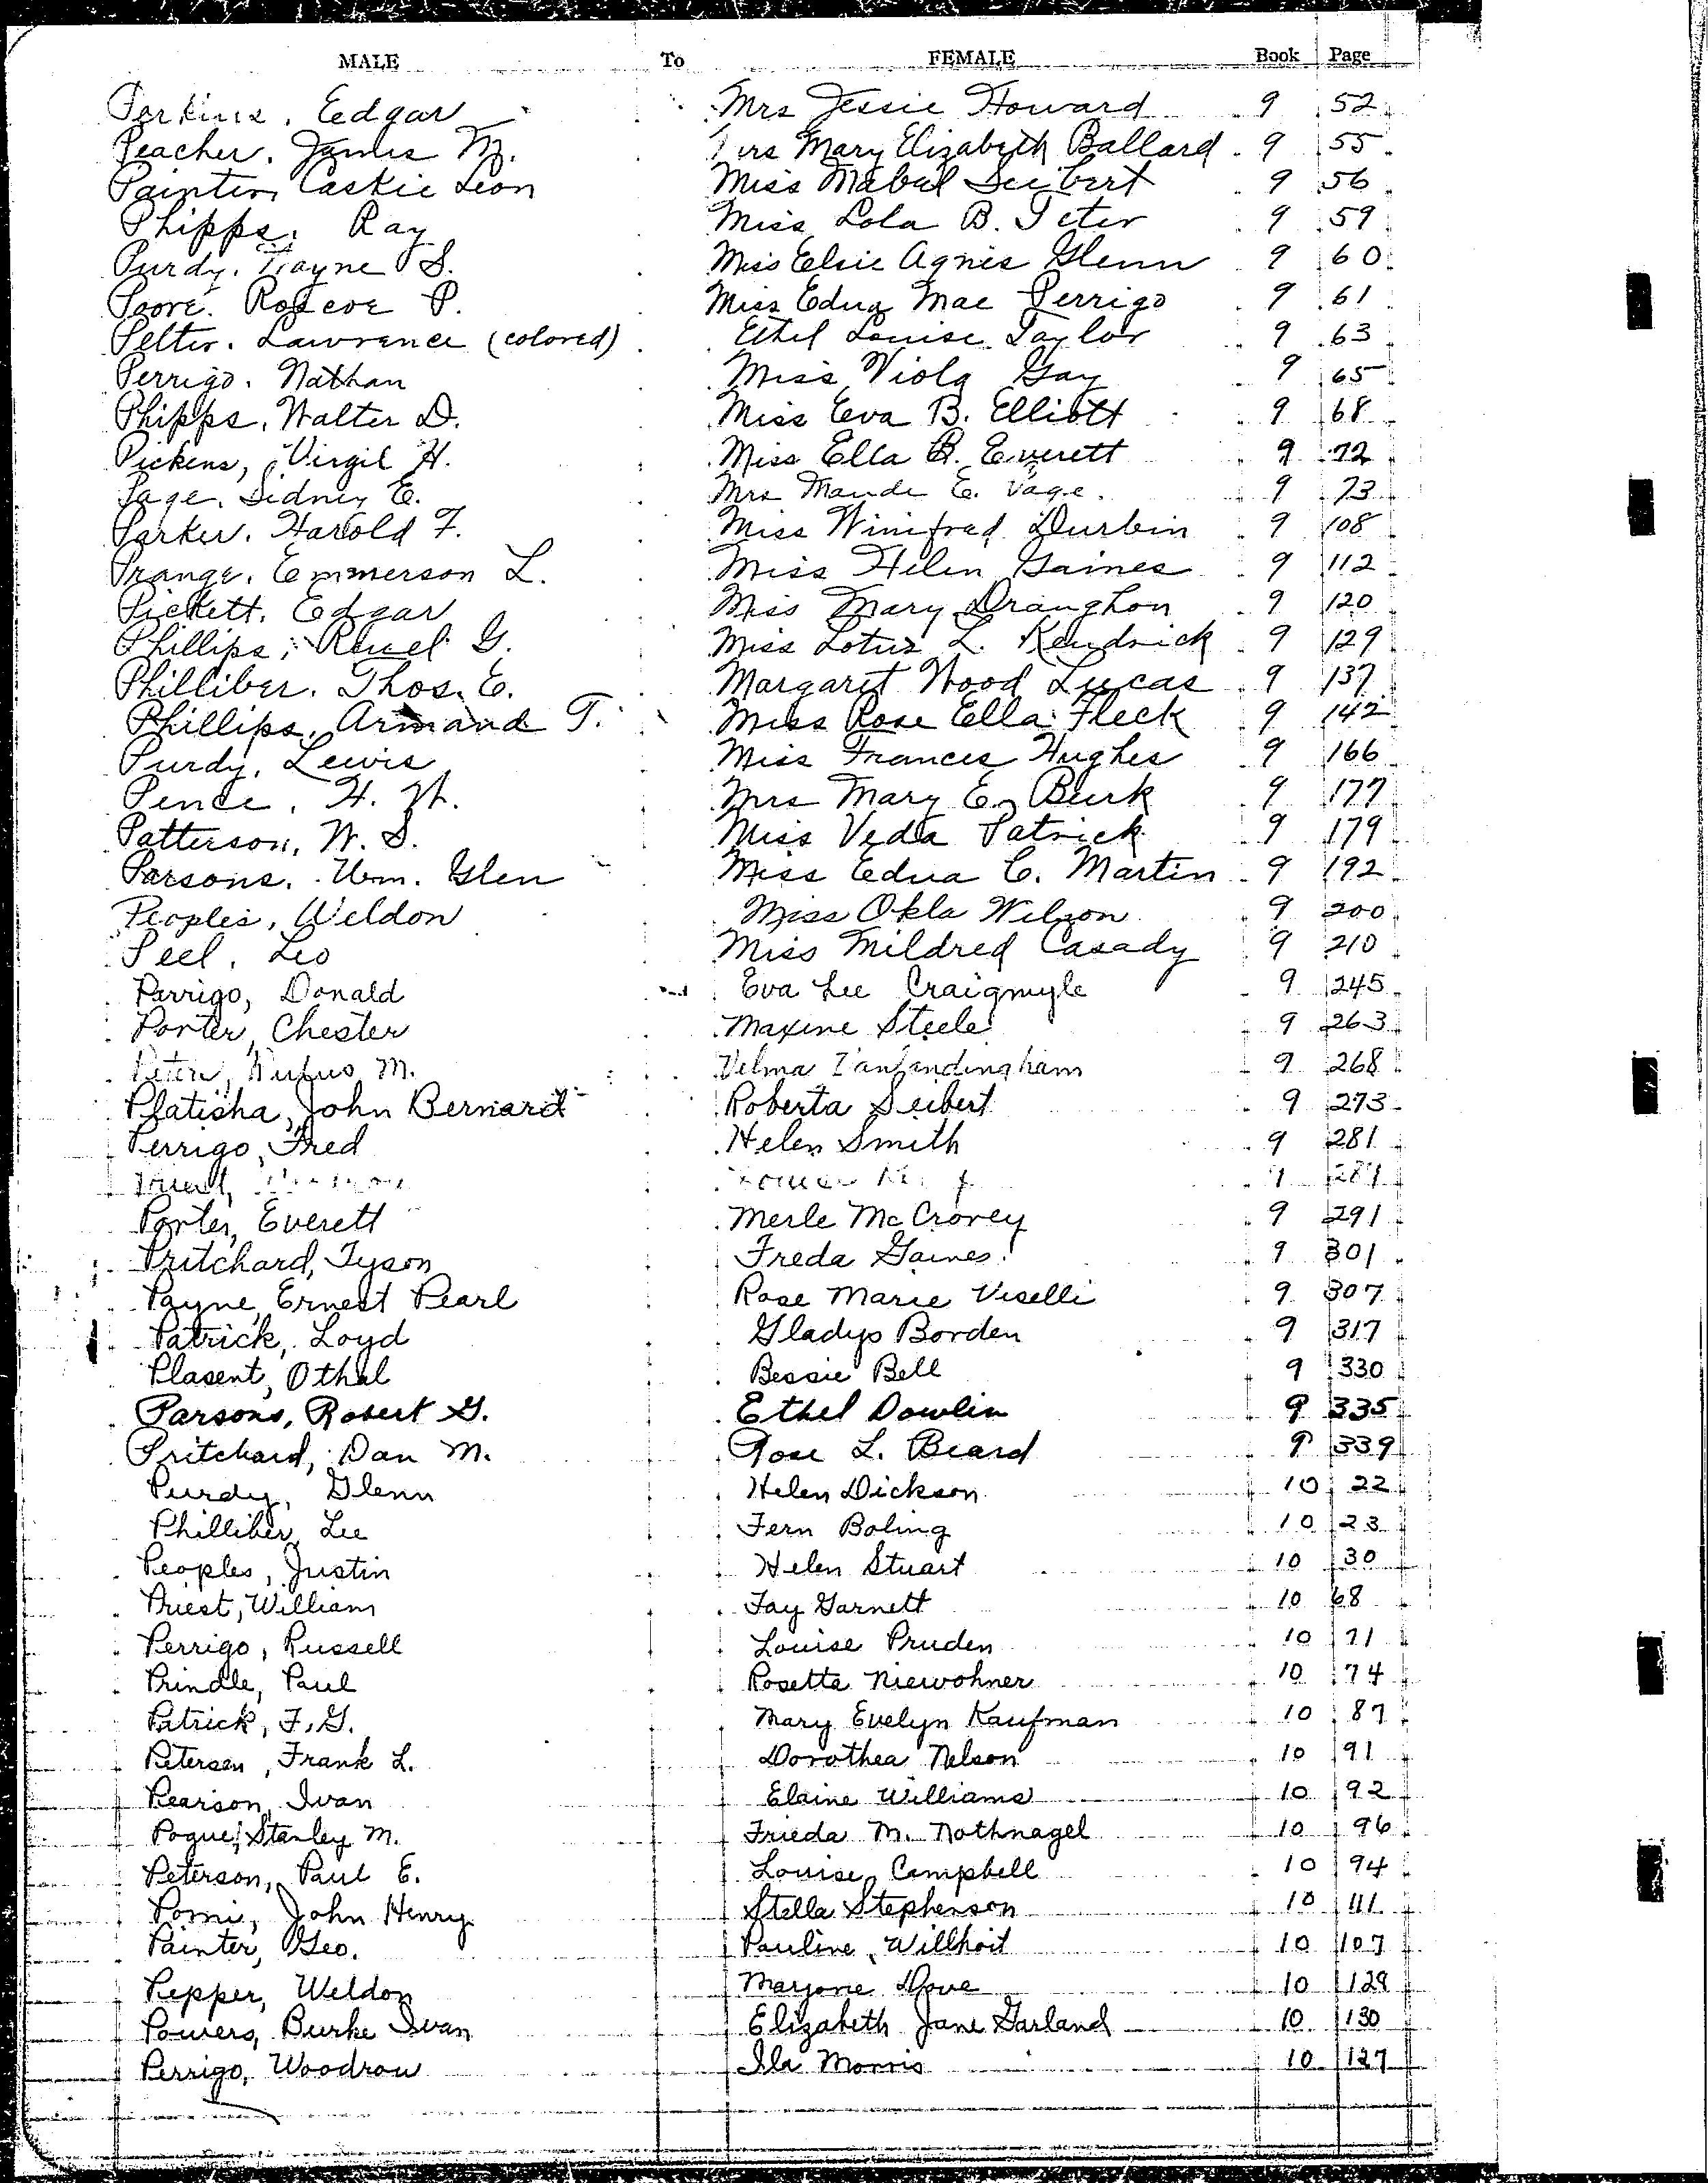 MALE To FEMALE Book Page
Perkins, Edgar Mrs Jessie Howard 9 52
Peacher, James M. Mrs Mary Elizabeth Ballard 9 55
Painter, Caskie Leon Miss Mabel Seibert 9 56
Phipps, Ray Miss Lola B. Teter 9 59
Purdy, Wayne S. Miss Elsie Agnes Glenn 9 60
Poore, Roscoe P. Miss Edna Mae Perrigo 9 61
Pelter, Lawrence (colored) Ethel Louise Taylor 9 63
Perrigo, Nathan Miss Viola Gay 9 65
Phipps, Walter D. Miss Eva B. Elliott 9 68
Pickens, Virgil H. Miss Ella B. Everett 9 72
Page, Sidney E. Mrs Maude E. Page 9 73
Parker, Harold F. Miss Winifred Durbin 9 108
Prange, Emmerson L. Miss Helen Gaines 9 112
Pickett, Edgar Miss Mary Draughon 9 120
Phillips, Reuel G. Miss Lotus L. Kendrick 9 129
Philliber, Thos. E. Margaret Wood Lucas 9 137
Phillips, Armand T. Miss Rose Ella Fleck 9 142
Purdy, Lewis Miss Frances Hughes 9 166
Pence, H. W. Mrs Mary E. Burk 9 177
Patterson, W. S. Miss Veda Patrick 9 179
Parsons, Wm. Glen Miss Edna C. Martin 9 192
Peoples, Weldon Miss Okla Wilson 9 200
Peel, Leo Miss Mildred Casady 9 210
Perrigo, Donald Eva Lee Craigmyle 9 245
Porter, Chester Maxine Steele 9 263
Rufus M. Velma Vanlandingham 9 268
Platisha, John Bernard Roberta Seibert 9 273
Perrigo, Fred Helen Smith 9 281
Porter, Everett Merle McCrorey 9 291
Pritchard, Tyson Freda Gaines 9 301
Payne, Ernest Pearl Rose Marie Viselli 9 307
Patrick, Loyd Gladys Borden 9 317
Plasent, Othal Bessie Bell 9 330
Parsons, Robert G. Ethel Dowlin 9 335
Pritchard, Dan M. Rose L. Beard 9 339
Purdy, Glenn Helen Dickson 10 22
Philliber, Lee Fern Boling 10 23
Peoples, Justin Helen Stuart 10 30
Priest, William Fay Garnett 10 68
Perrigo, Russell Louise Pruden 10 71
Prindle, Paul Rosetta Niewohner 10 74
Patrick, F. G. Mary Evelyn Kaufman 10 87
Petersen, Frank L. Dorothea Nelson 10 91
Pearson, Ivan Elaine Williams 10 92
Pogue, Stanley M. Frieda M. Nothnagel 10 96
Peterson, Paul E. Louise Campbell 10 94
Pomi, John Henry Stella Stephenson 10 111
Painter, Geo. Pauline Willhoit 10 107
Pepper, Weldon Marjorie Dove 10 129
Powers, Burke Ivan Elizabeth Jane Garland 10 130
Perrigo, Woodrow Ila Morris 10 127